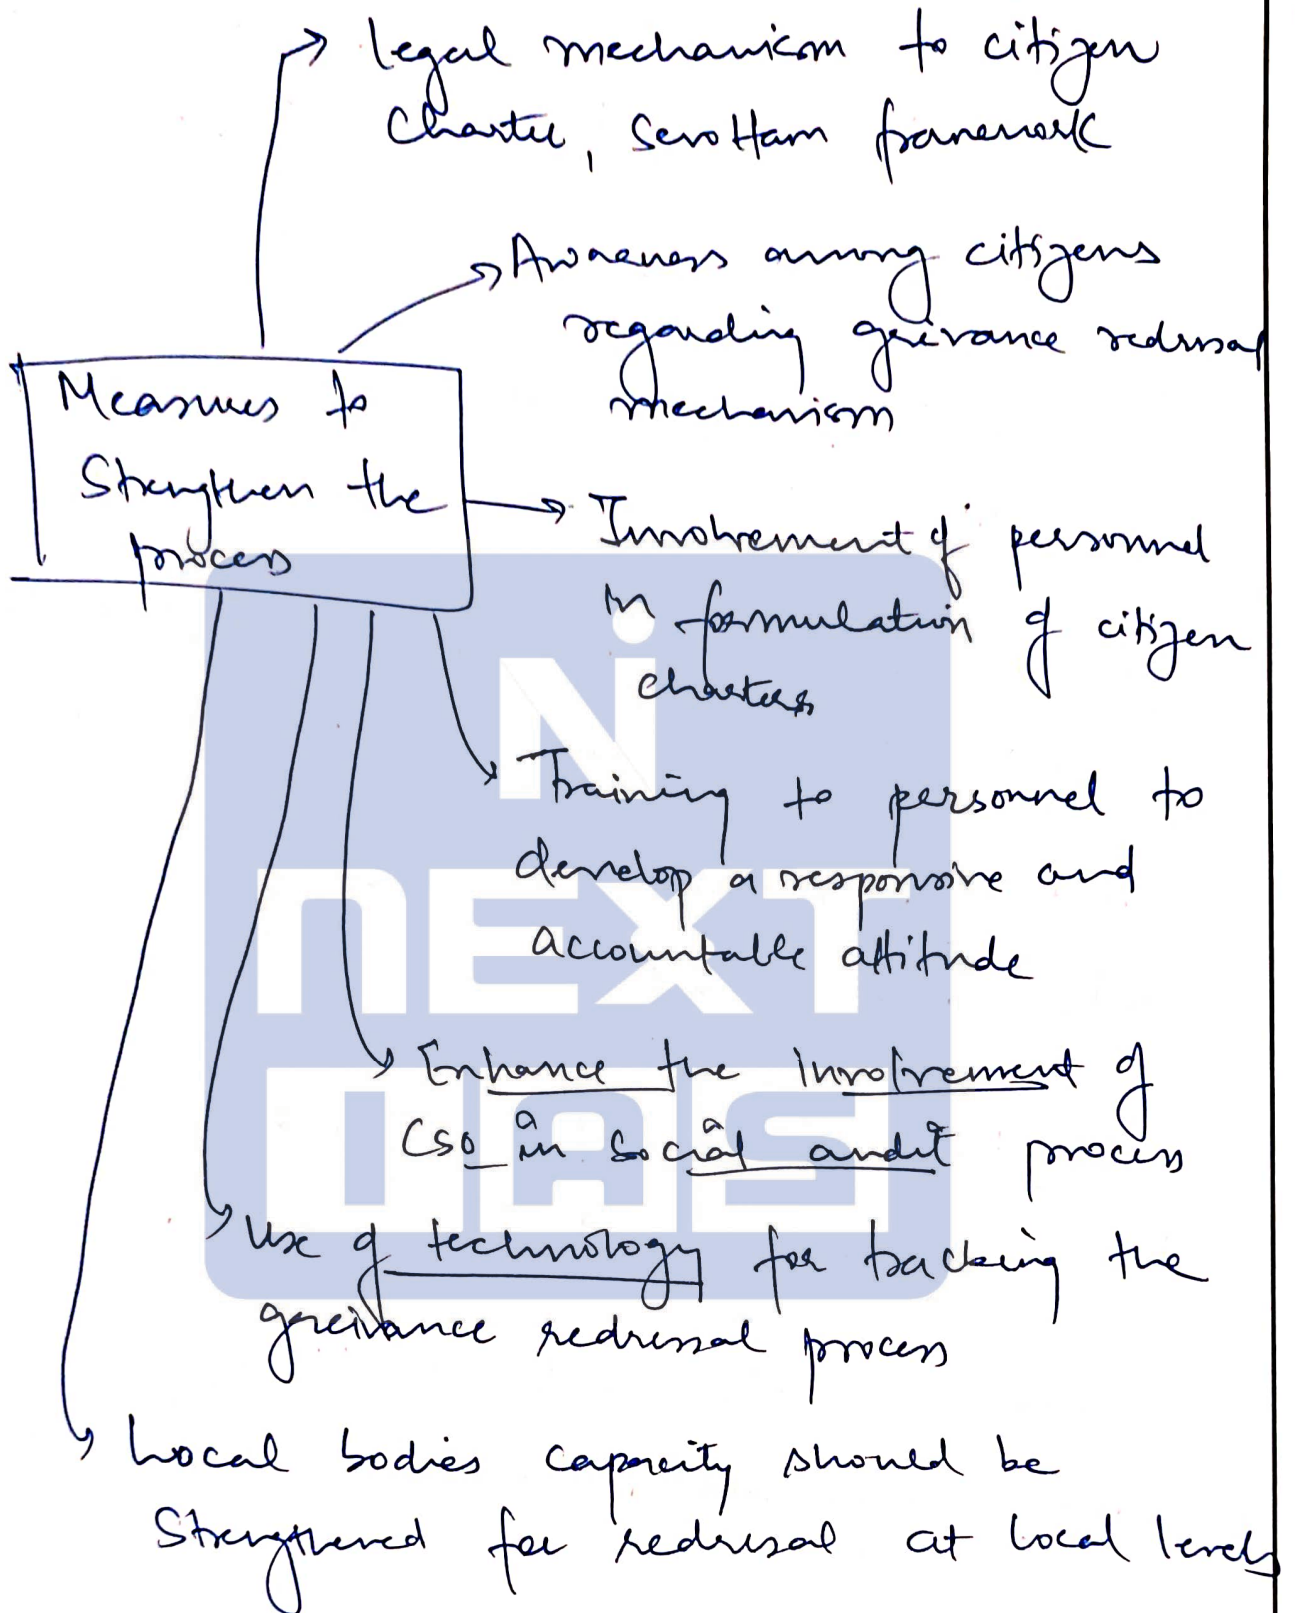 Legal mechanism to citizen
Charter, Sevottam framework
Awareness among citizens
regarding grievance redrssal
mechanism
Measures to
Strengthen the
process
Involvement of personnel
in formulation of citizen
charters
Training to personnel to
develop a responsive and
accountable attitude
Enhance the involvement of
CSO in Social audit process
Use of technology for tracking the
greivance redressal process
Local bodies capacity should be
Strengthened for redressal at local levels
Ni
NEXT
IAS